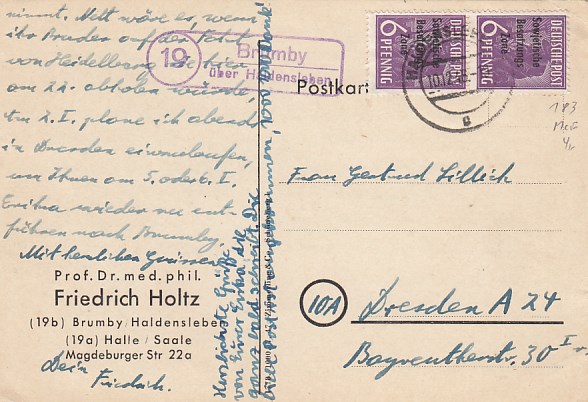 nimmt. Nett wäre es, wenn
ihr Bruder auf der Fahrt
von Heidelberg Sie hier
am 22. abholen würde.
Am 2. I. plane ich abends
in Dresden einzulaufen,
um Ihnen am 5. oder 6. I.
Erika wieder zu ent-
führen nach Brumby.
Mit herzlichen Grüssen
Prof. Dr. med. phil.
Friedrich Holtz
(19b) Brumby/Haldensleben
(19a) Halle / Saale
Magdeburger Str 22a
Dein
Friedrich.
Herzlichste Grüße
von Eurer Erika die
ganz bald schreibt. Die
Post
angekommen,
Dank!
19
Brumby
über Haldensleben
Postkart
6 PFENNIG
DEUTSCHE POST
Sowjetische
Besatzungs
Zone
6 PFENNIG
DEUTSCHE POST
Sowjetische
Besatzungs
Zone
Frau Gertrud Lillich
10A
Dresden A 24
Bayreutherstr. 30 I